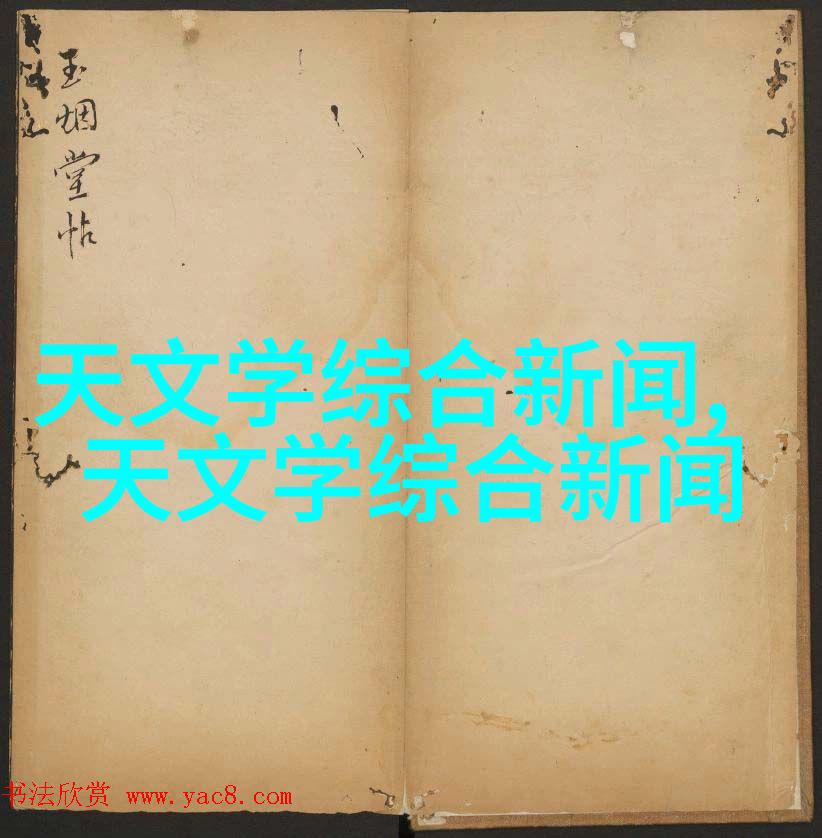 玉烟堂帖
天文学综合新闻,
天文学综合新闻
书法欣赏 www.yac8.com